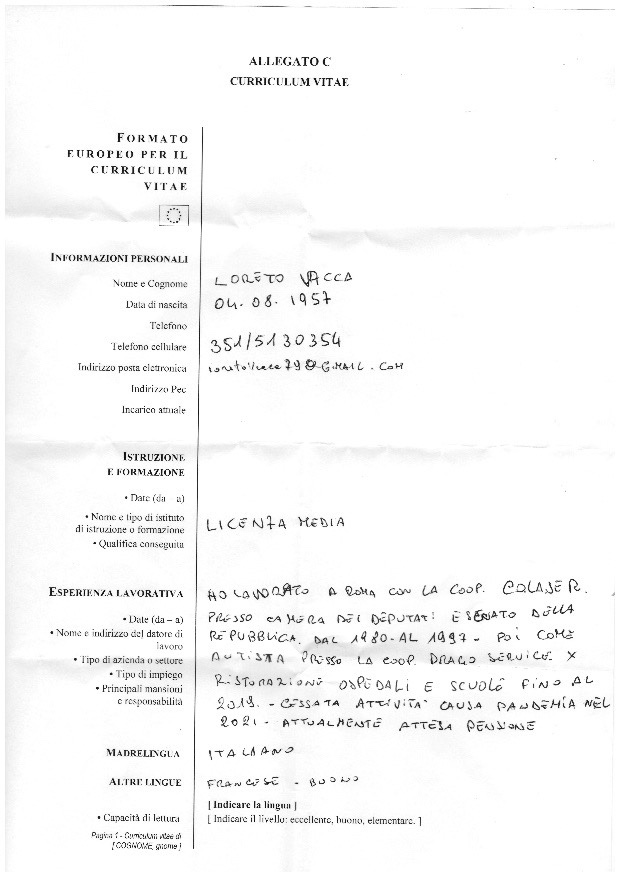 ALLEGATO C
CURRICULUM VITAE
FORMATO
EUROPEO PER IL
CURRICULUM
VITAE
INFORMAZIONI PERSONALI
Nome e Cognome LORETO VACCA
Data di nascita 04.08.1957
Telefono
Telefono cellulare 351/5130354
Indirizzo posta elettronica @GMAIL.COM
Indirizzo Pec
Incarico attuale
ISTRUZIONE
E FORMAZIONE
• Date (da – a)
• Nome e tipo di istituto
di istruzione o formazione LICENZA MEDIA
• Qualifica conseguita
ESPERIENZA LAVORATIVA HO LAVORATO A ROMA CON LA COOP. COLASER.
• Date (da – a) PRESSO CAMERA DEI DEPUTATI E SENATO DELLA
• Nome e indirizzo del datore di
lavoro REPUBBLICA. DAL 1980-AL 1997- POI COME
• Tipo di azienda o settore AUTISTA PRESSO LA COOP. DRAGO SERVICE X
• Tipo di impiego RISTORAZIONE OSPEDALI E SCUOLE FINO AL
• Principali mansioni
e responsabilità 2019.- CESSATA ATTIVITA' CAUSA PANDEMIA NEL
2021- ATTUALMENTE ATTESA PENSIONE
MADRELINGUA ITALIANO
ALTRE LINGUE FRANCESE - BUONO
[ Indicare la lingua ]
• Capacità di lettura [ Indicare il livello: eccellente, buono, elementare. ]
Pagina 1 - Curriculum vitae di
[ COGNOME, gnome ]